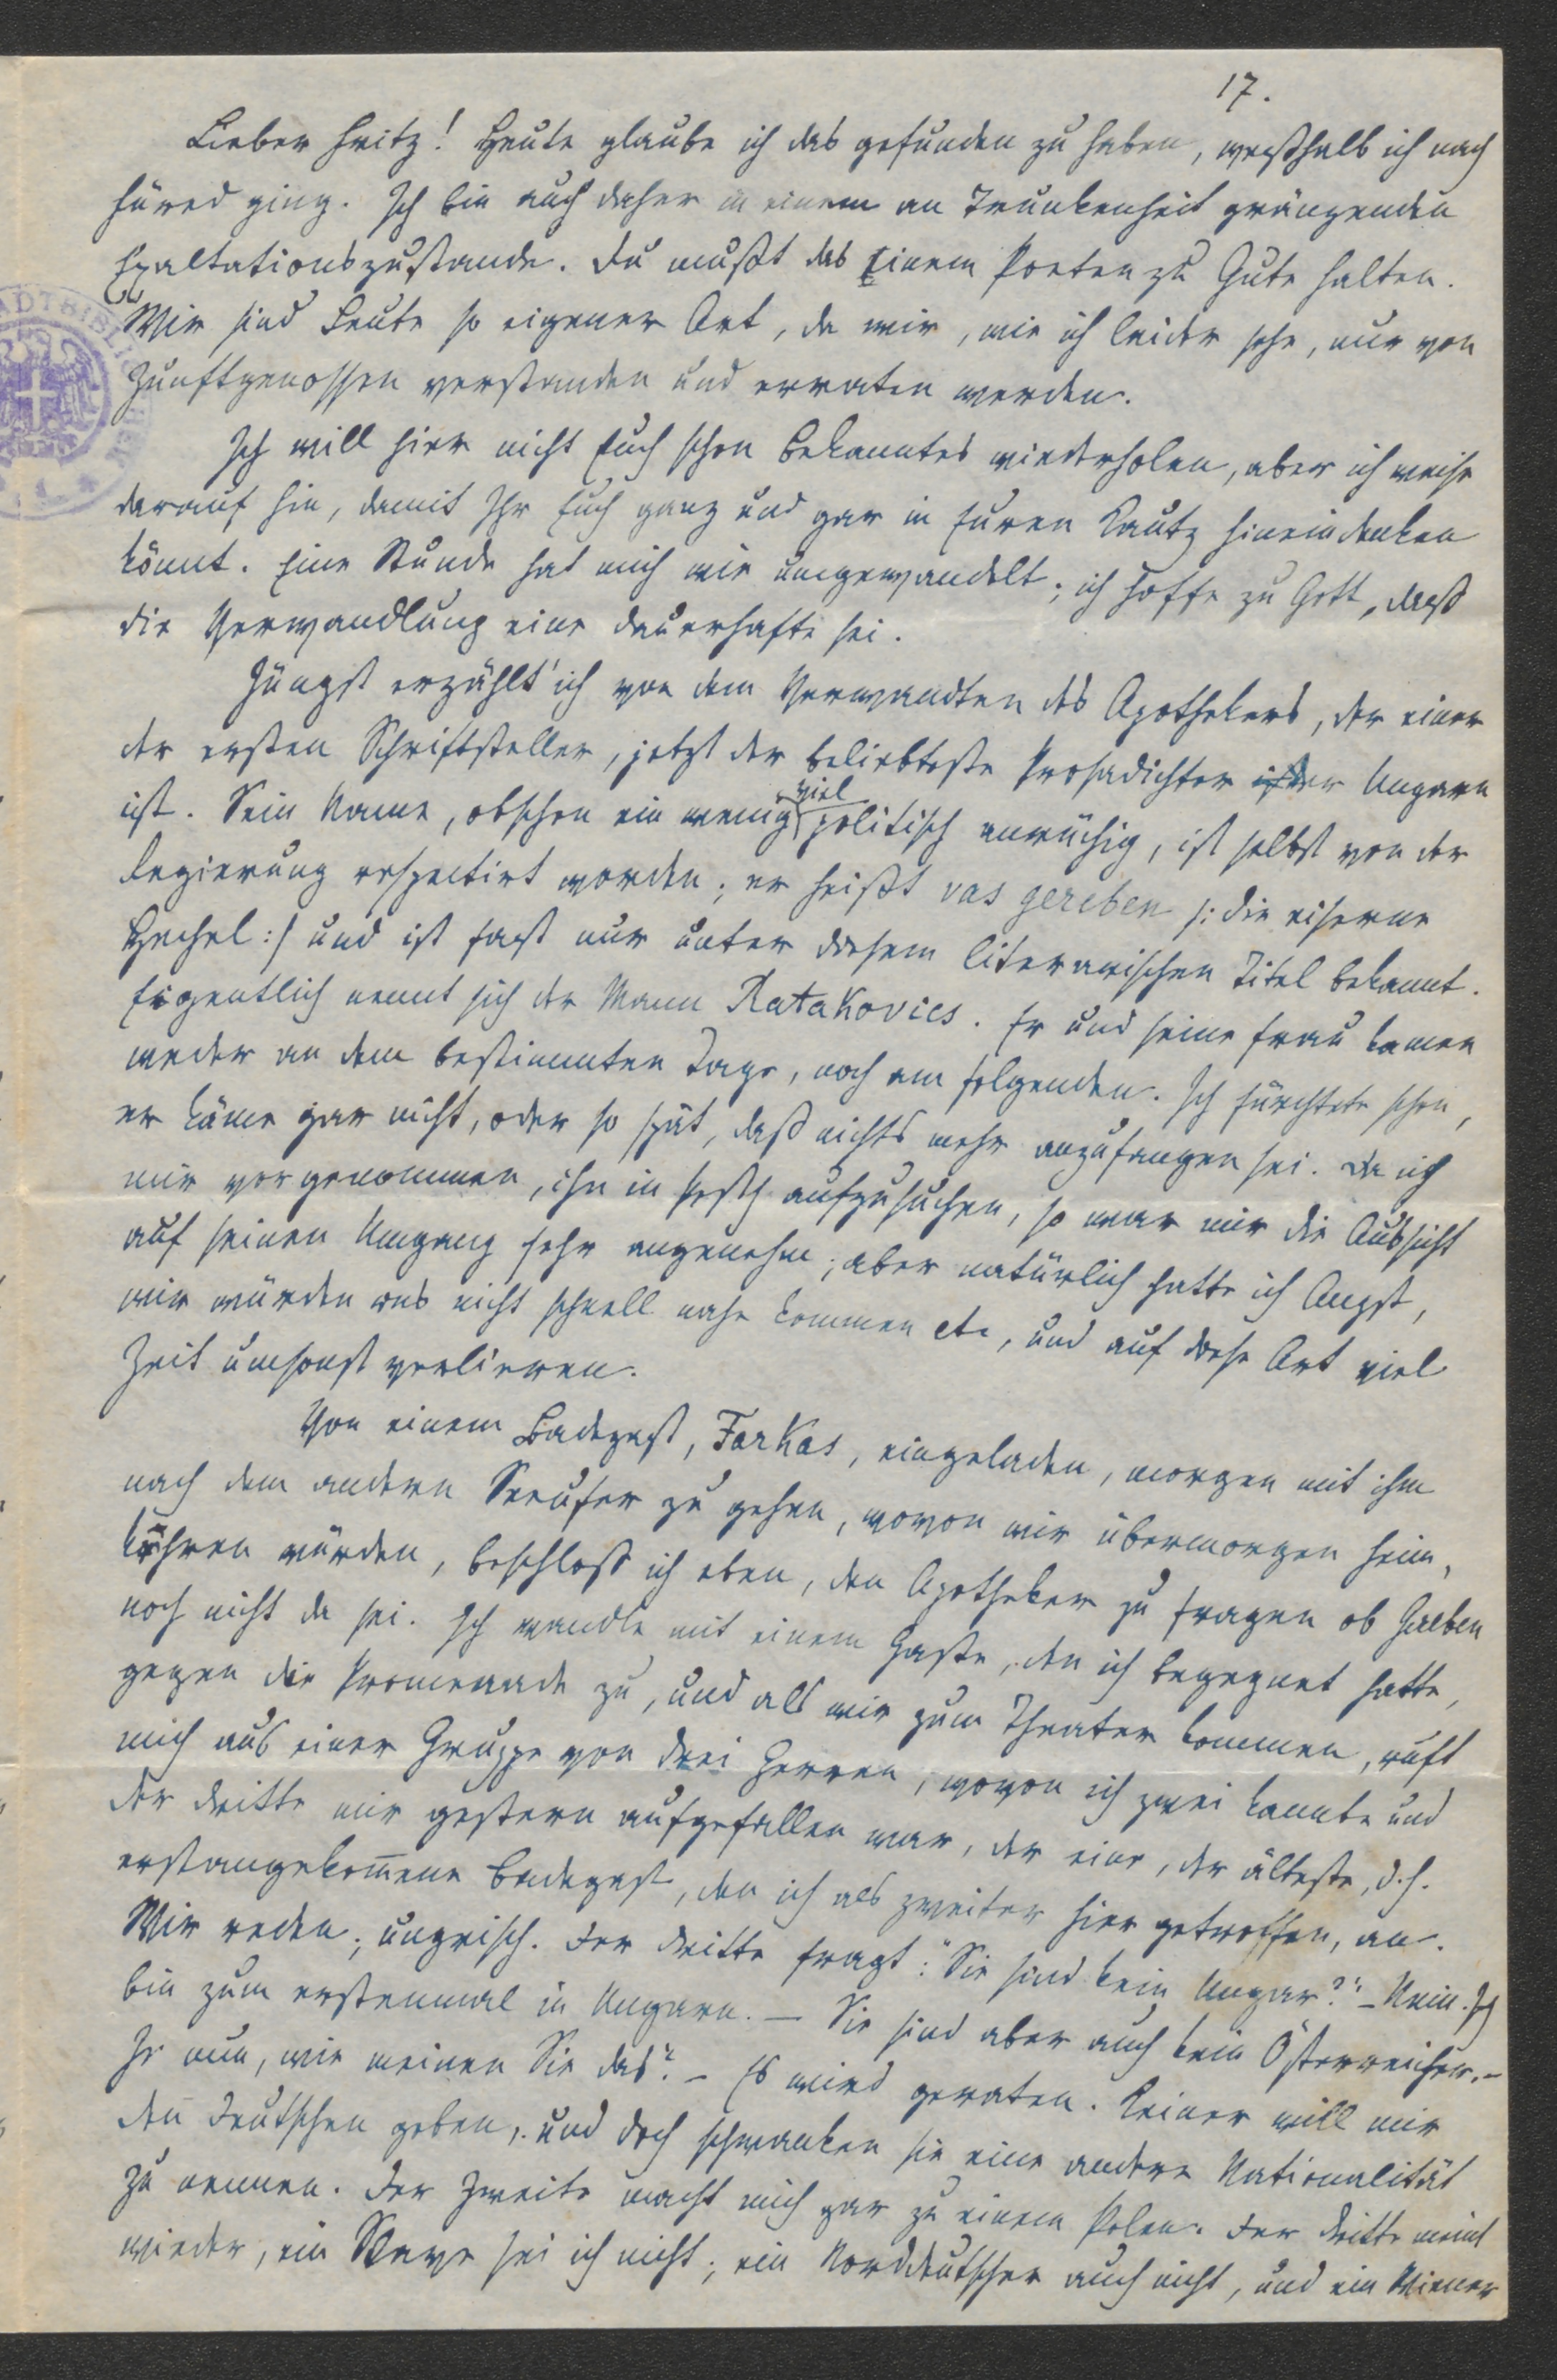 17.
Lieber Fritz! Heute glaube ich das gefunden zu haben, weßhalb ich nach
Füred ging. Ich bin auch daher in einem an Trunkenheit gränzenden
Exaltationszustande. Du mußt das Einem Poeten zu Gute halten.
Wir sind Leute so eigener Art, da wir, wie ich leider sehe, nur von
Zunftgenossen verstanden und erraten werden.
Ich will hier nicht Euch schon Bekanntes wiederholen, aber ich weise
darauf hin, damit Ihr Euch ganz und gar in Euren Kautz hineindenken
könnt. Eine Stunde hat mich wie umgewandelt; ich hoffe zu Gott, daß
die Verwandlung eine dauerhafte sei.
Jüngst erzählt' ich von dem Verwandten des Apothekers, der einer
der ersten Schriftsteller, jetzt der beliebteste Prosadichter der Ungarn
ist. Sein Name, obschon ein wenig viel politisch anrüchig, ist selbst von der
Regierung respectirt worden; er heißt vas gereben /: die eiserne
Hechel :/ und ist fast nur unter diesem literarischen Titel bekannt.
Eigentlich nennt sich der Mann Ratakovics. Er und seine Frau kamen
weder an dem bestimmten Tage, noch am folgenden. Ich fürchtete schon,
er käme gar nicht, oder so spät, daß nichts mehr anzufangen sei. Da ich
mir vorgenommen, ihn in Pesth aufzusuchen, so war mir die Aussicht
auf seinen Umgang sehr angenehm; aber natürlich hatte ich Angst,
wir würden uns nicht schnell nahe kommen etc, und auf diese Art viel
Zeit umsonst verlieren.
Von einem Badegast, Farkas, eingeladen, morgen mit ihm
nach dem andern Seeufer zu gehen, wovon wir übermorgen heim,
kehren würden, beschloß ich eben, den Apotheker zu fragen ob Gereben
noch nicht da sei. Ich wandle mit einem Gaste, den ich begegnet hatte,
gegen die Promenade zu, und als wir zum Theater kommen, ruft
mich aus einer Gruppe von drei Herren, wovon ich zwei kannte und
der dritte mir gestern aufgefallen war, der eine, der älteste, d.h.
erstangekom̄ene Badegast, den ich als zweiter hier getroffen, an.
Wir reden; ungrisch. Der dritte fragt: "Sie sind kein Ungar?" – Nein. Ich
bin zum erstenmal in Ungarn. – Sie sind aber auch kein Österreicher. –
Je nun, wie meinen Sie das? – Es wird geraten. Keiner will mir
den Deutschen geben, und doch schwanken sie eine andere Nationalität
zu nennen. Der Zweite macht mich gar zu einem Polen. Der dritte meint
wieder, ein Slave sei ich nicht; ein Norddeutscher auch nicht, und ein Wiener